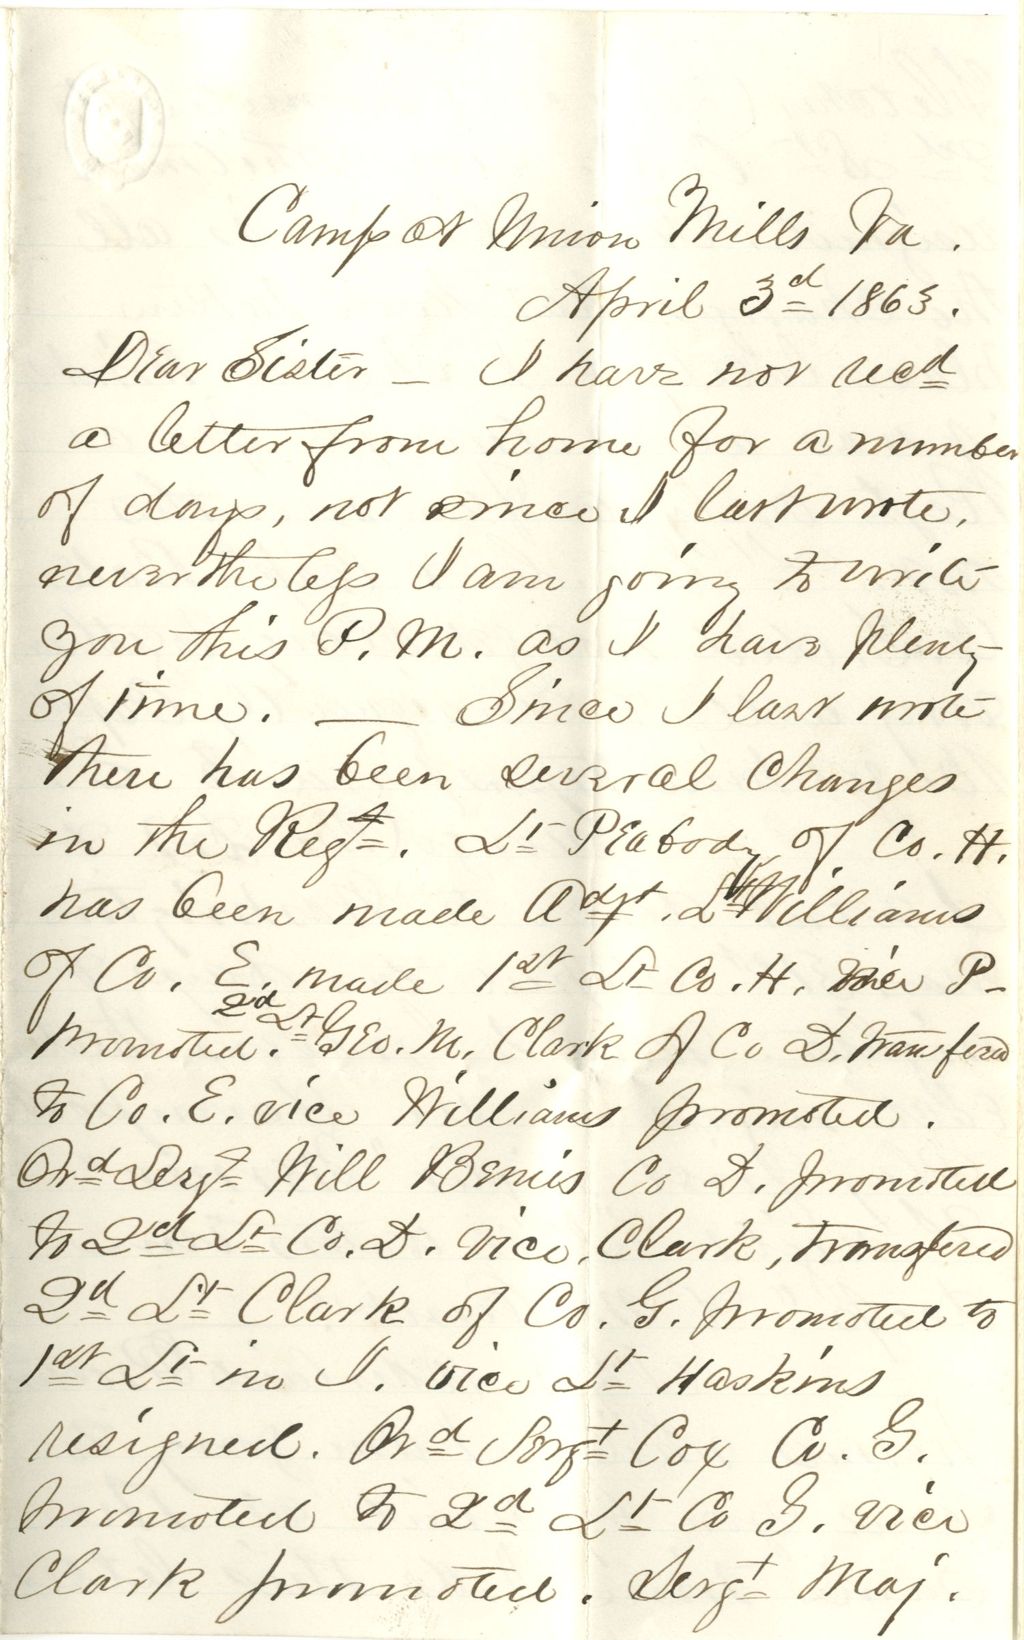 Camp at Union Mills Va.
April 3d 1863.
Dear Sister – I have not recd
a letter from home for a number
of days, not since I last wrote,
nevertheless I am going to write
you this P.M. as I have plenty
of time. — Since I last wrote
there has been several changes
in the Regt. Lt Peabody of Co. H.
has been made Adjt. Lt Williams
of Co. E. made 1st Lt Co. H. vice P–
promoted. 2d Lt Geo. M. Clark of Co D. transfered
to Co. E. vice Williams promoted.
Ord Sergt Will Bemis Co D. promoted
to 2d Lt Co. D. vice, Clark, transfered
2d Lt Clark of Co. G. promoted to
1st Lt in I. vice Lt Haskins
resigned. Ord Sergt Cox Co. G.
promoted to 2d Lt Co G. vice
Clark promoted. Sergt Maj.